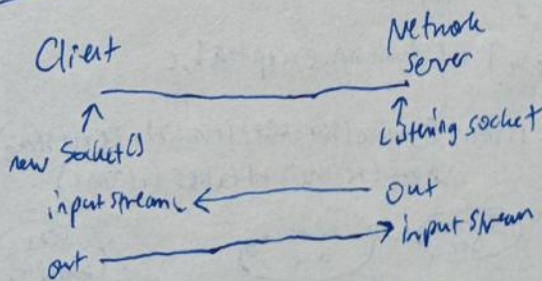 Client
Network
server
new Socket()
Listening socket
inputstream
out
out
input stream